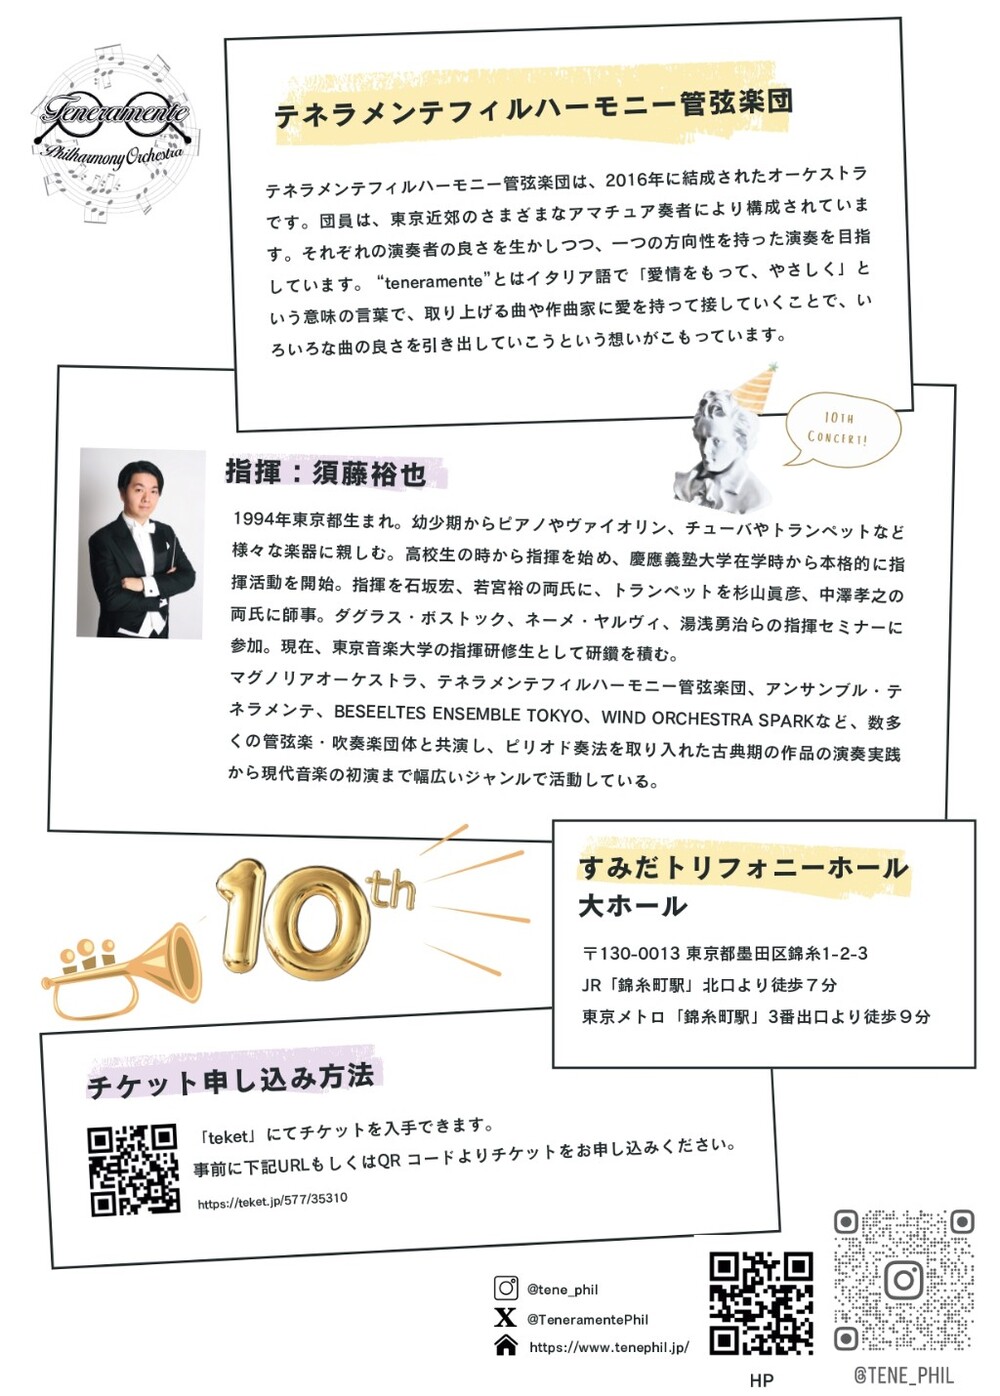 Teneramente
Philharmony Orchestra
テネラメンテフィルハーモニー管弦楽団
テネラメンテフィルハーモニー管弦楽団は、2016年に結成されたオーケストラ
です。団員は、東京近郊のさまざまなアマチュア奏者により構成されていま
す。それぞれの演奏者の良さを生かしつつ、一つの方向性を持った演奏を目指
しています。“teneramente”とはイタリア語で「愛情をもって、やさしく」と
いう意味の言葉で、取り上げる曲や作曲家に愛を持って接していくことで、い
ろいろな曲の良さを引き出していこうという想いがこもっています。
10TH
CONCERT!
指揮：須藤裕也
1994年東京都生まれ。幼少期からピアノやヴァイオリン、チューバやトランペットなど
様々な楽器に親しむ。高校生の時から指揮を始め、慶應義塾大学在学時から本格的に指
揮活動を開始。指揮を石坂宏、若宮裕の両氏に、トランペットを杉山眞彦、中澤孝之の
両氏に師事。ダグラス・ボストック、ネーメ・ヤルヴィ、湯浅勇治らの指揮セミナーに
参加。現在、東京音楽大学の指揮研修生として研鑽を積む。
マグノリアオーケストラ、テネラメンテフィルハーモニー管弦楽団、アンサンブル・テ
ネラメンテ、BESEELTES ENSEMBLE TOKYO、WIND ORCHESTRA SPARKなど、数多
くの管弦楽・吹奏楽団体と共演し、ピリオド奏法を取り入れた古典期の作品の演奏実践
から現代音楽の初演まで幅広いジャンルで活動している。
10th
すみだトリフォニーホール
大ホール
〒130-0013 東京都墨田区錦糸1-2-3
JR「錦糸町駅」北口より徒歩７分
東京メトロ「錦糸町駅」3番出口より徒歩９分
チケット申し込み方法
「teket」にてチケットを入手できます。
事前に下記URLもしくはQR コードよりチケットをお申し込みください。
https://teket.jp/577/35310
@tene_phil
@TeneramentePhil
https://www.tenephil.jp/
HP
@TENE_PHIL